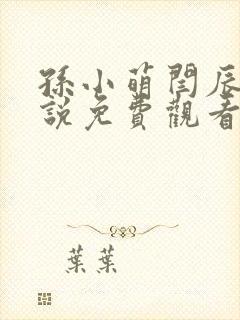 孫小萌閆辰
說免費觀看
葉葉